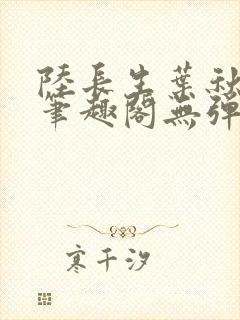 陸長生葉秋
筆趣閣無彈
寒千汐